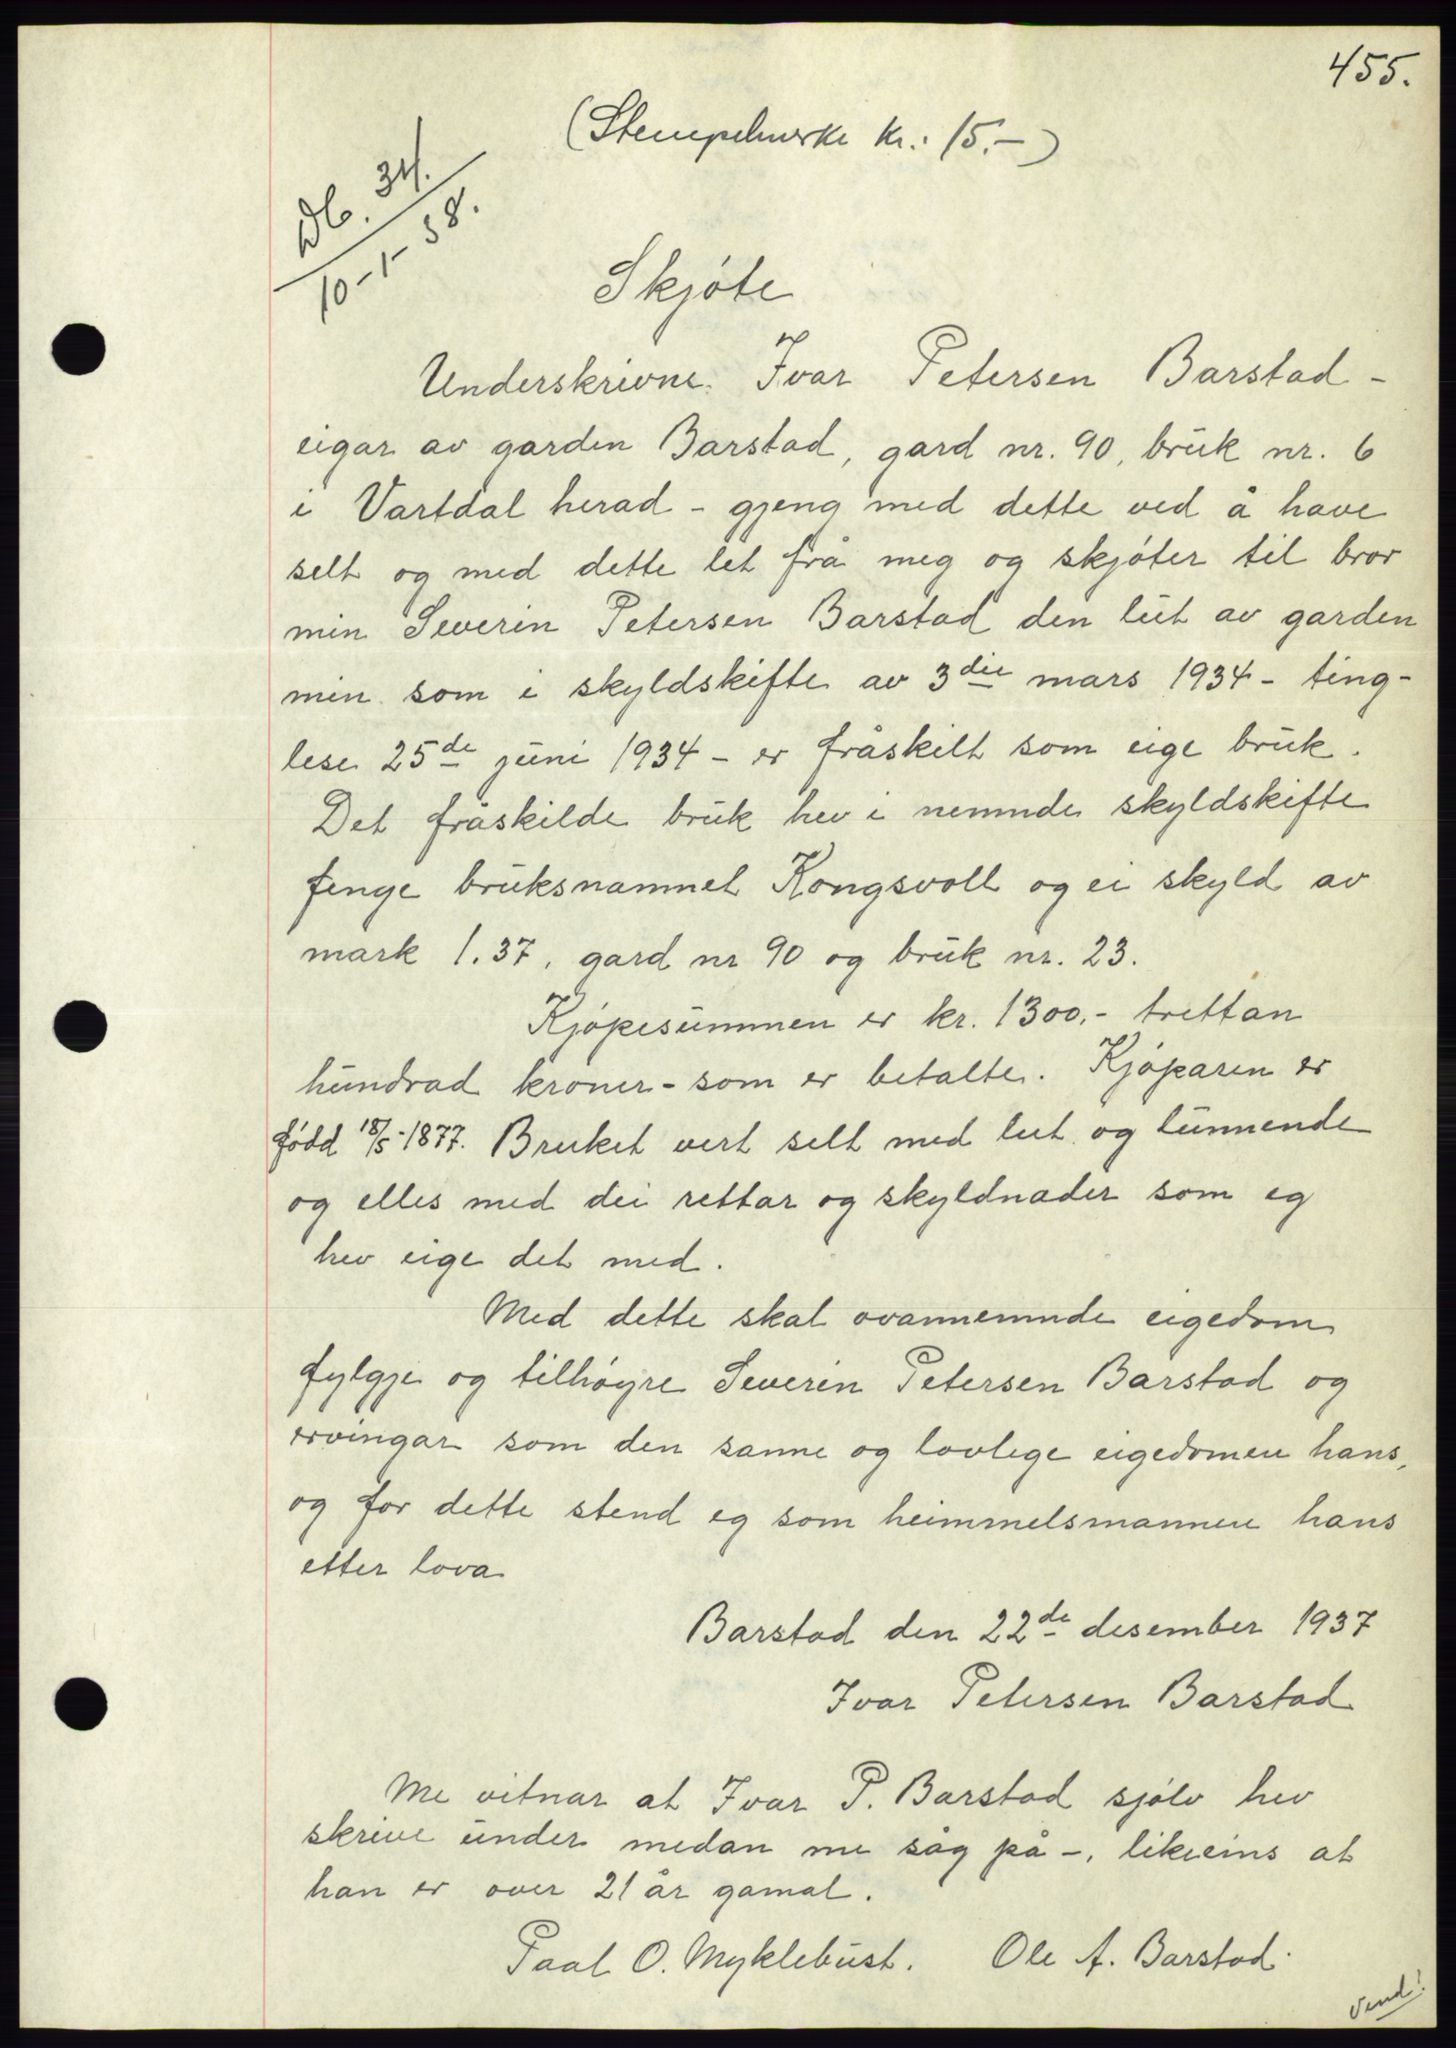 455.
(Stempelmerke kr.: 15.-)
Db. 34.
10-1-38.
Skjøte
Underskrivne Ivar Petersen Barstad -
eigar av garden Barstad, gard nr. 90, bruk nr. 6
i Vartdal herad - gjeng med dette ved å have
selt og med dette let frå meg og skjøter til bror
min Severin Petersen Barstad den lut av garden
min som i skyldskifte av 3die mars 1934 - ting-
lese 25de juni 1934 - er fråskilt som eige bruk.
Det fråskilde bruk hev i nemnde skyldskifte
fenge bruksnamnet Kongsvoll og ei skyld av
mark 1.37, gard nr 90 og bruk nr. 23.
Kjøpesummen er kr. 1300,- trettan
hundrad kroner - som er betalte. Kjøparen er
født 18/5-1877. Bruket vert selt med lut og lunnende
og elles med dei rettar og skyldnader som eg
hev eige det med.
Med dette skal ovannemnde eigedom
fylgje og tilhøyre Severin Petersen Barstad og
ervingar som den sanne og lovlege eigedomen hans,
og for dette stend eg som heimmelsmannen hans
etter lova
Barstad den 22de desember 1937
Ivar Petersen Barstad
Me vitnar at Ivar P. Barstad sjølv hev
skrive under medan me såg på -, likeeins at
han er over 21 år gamal.
Paal O. Myklebust. Ole A. Barstad.
Vend!